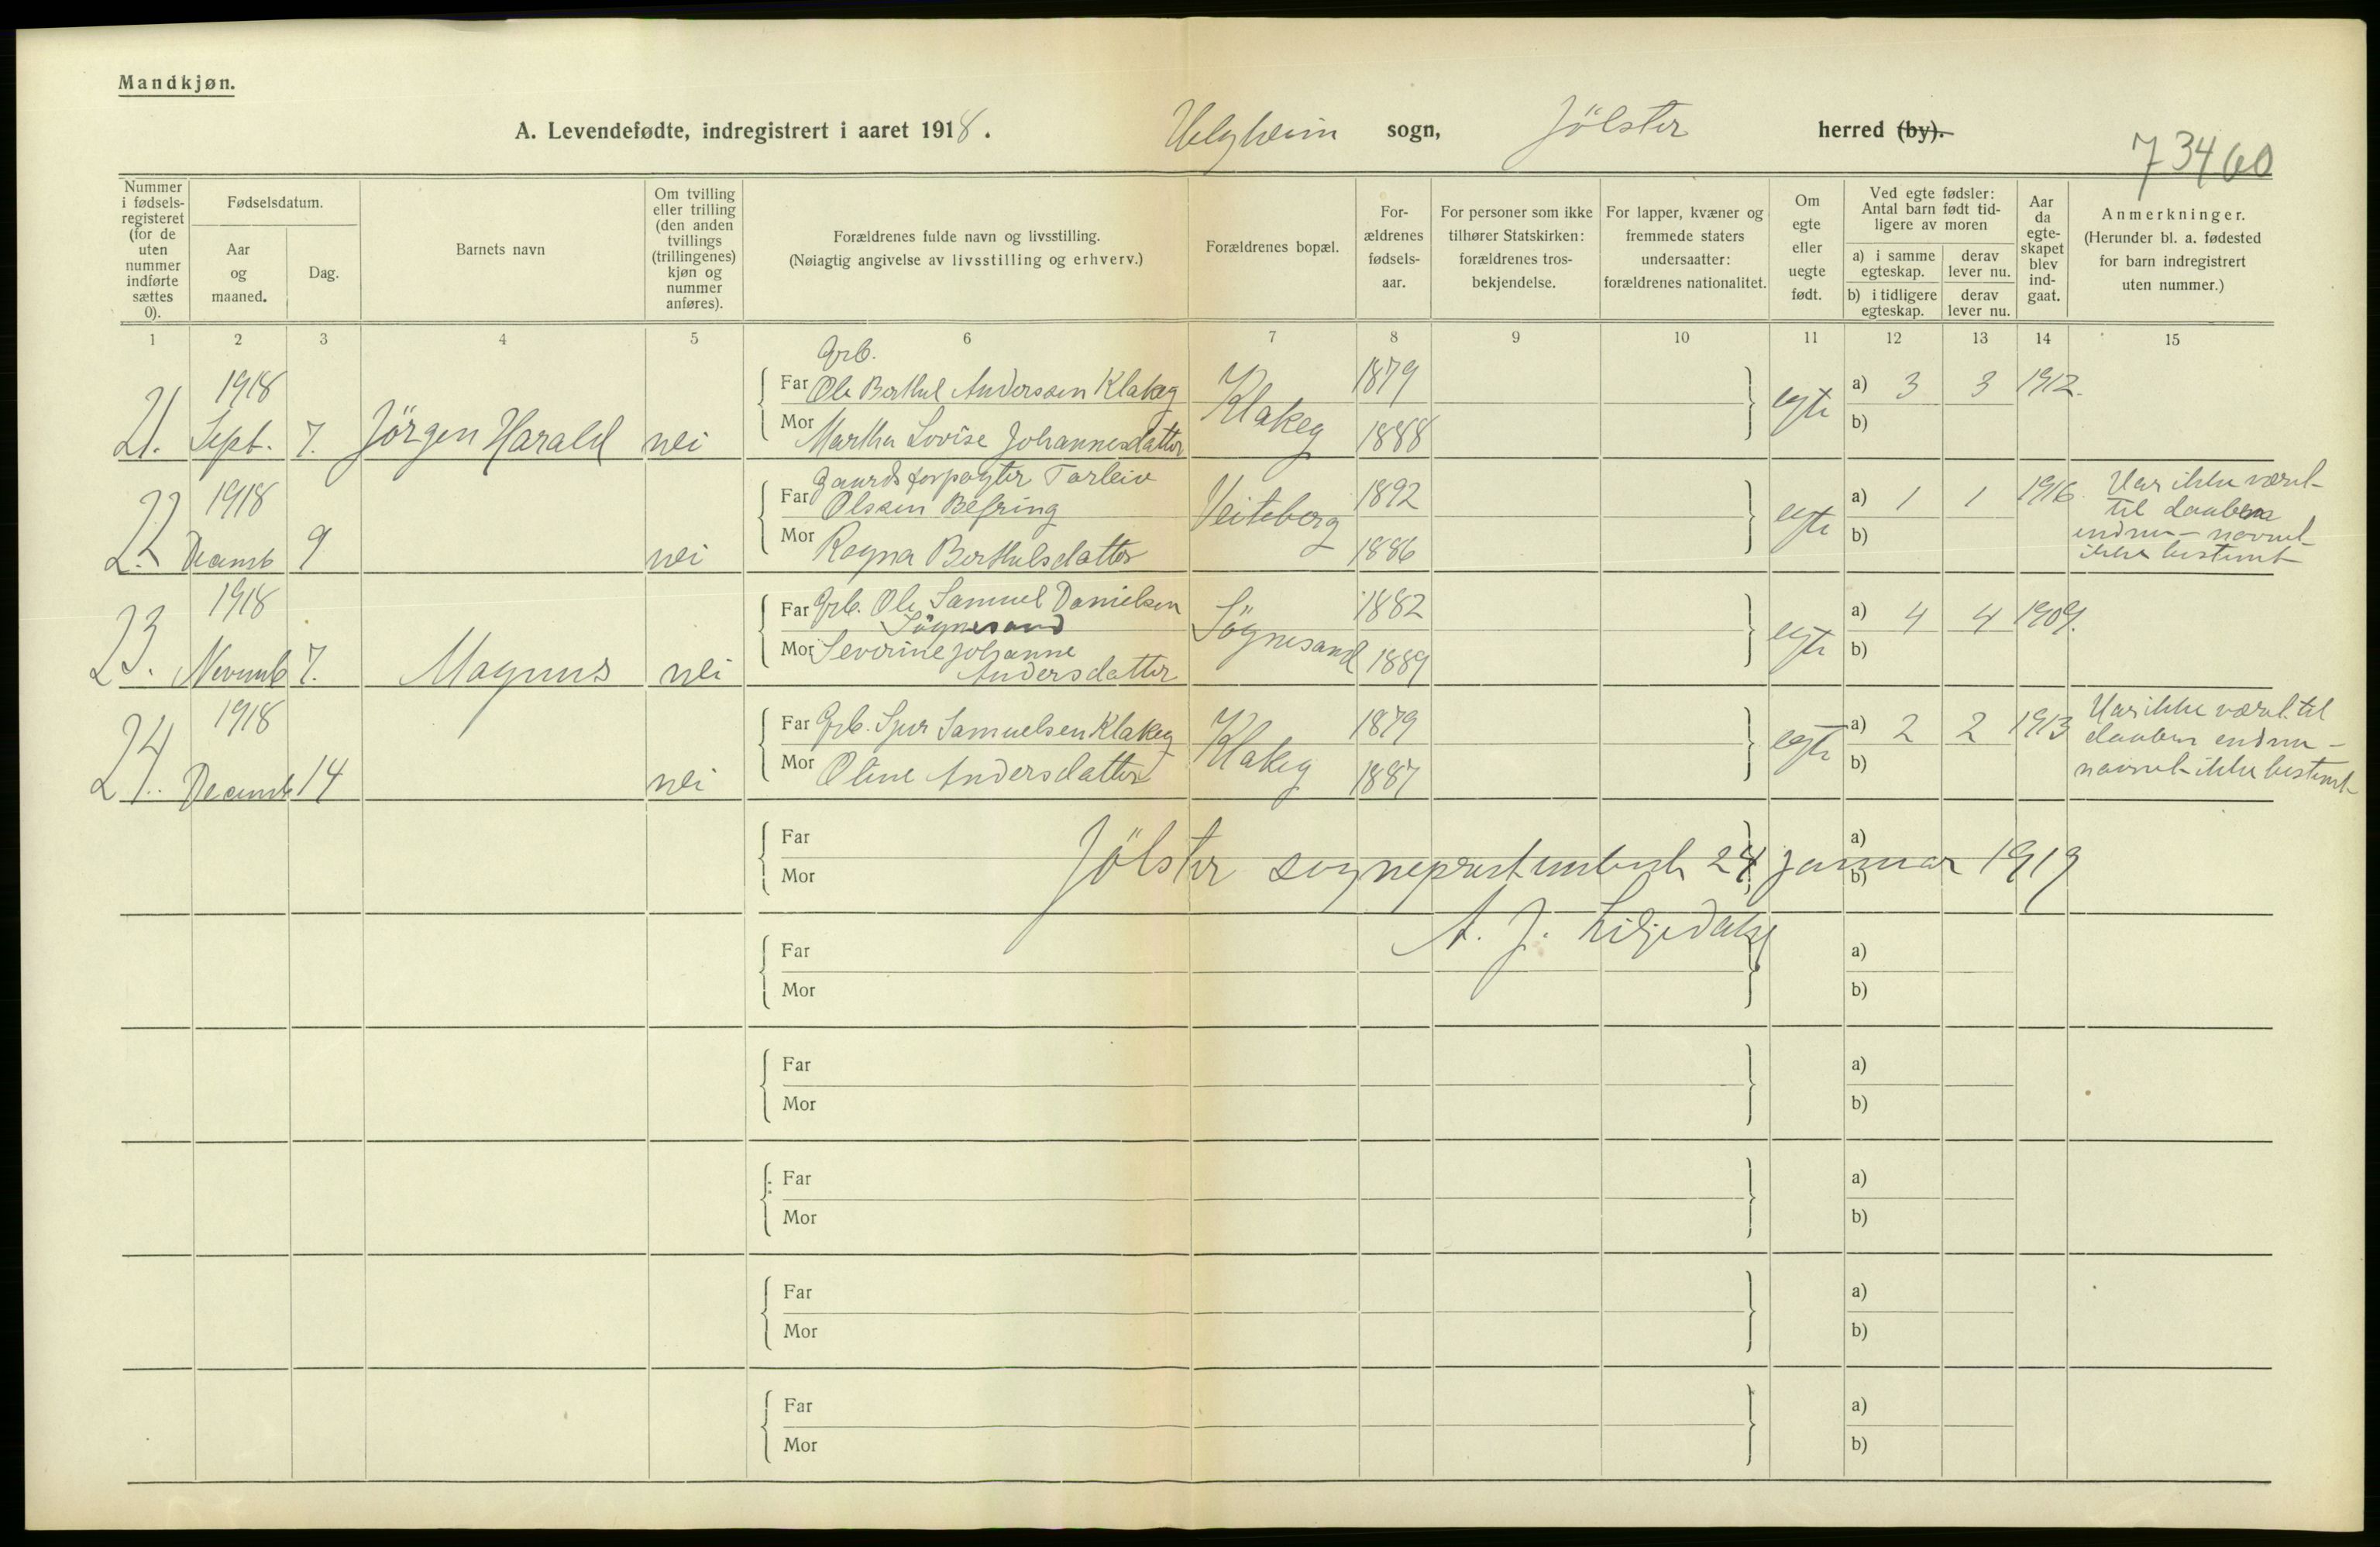 Mandkjøn.
A. Levendefødte, indregistrert i aaret 1918. Helgheim sogn, Jölster herred (by).
73460
Nummer i fødsels- registeret (for de uten nummer indførte sættes 0).
Fødselsdatum.
Aar og maaned.
Dag.
Barnets navn
Om tvilling eller trilling (den anden tvillings (trillingenes) kjøn og nummer anføres).
Forældrenes fulde navn og livsstilling.
(Nøiagtig angivelse av livsstilling og erhverv.)
Forældrenes bopæl.
For- ældrenes fødsels- aar.
For personer som ikke tilhører Statskirken: forældrenes tros- bekjendelse.
For lapper, kvæner og fremmede staters undersaatter: forældrenes nationalitet.
Om egte eller uegte født.
Ved egte fødsler: Antal barn født tid- ligere av moren
a) i samme egteskap.
derav lever nu.
b) i tidligere egteskap.
derav lever nu.
Aar da egte- skapet blev ind- gaat.
Anmerkninger.
(Herunder bl. a. fødested for barn indregistrert uten nummer.)
1 2 3 4 5 6 7 8 9 10 11 12 13 14 15
Grb.
1918 Far Ole Berthel Anderssen Klakeg 1879 a) 3 3 1912.
21. Sept. 7. Jörgen Harald nei Mor Martha Lovise Johannesdatter Klakeg 1888 egte b)
Gaardsforpagter Tarleiv
1918 Far Olssen Befring Veiteberg 1892 a) 1 1 1916. Har ikke været
til daaben
22 Decemb 9 nei Mor Ragna Berthelsdatter 1886 egte b) endnu - navnet
ikke bestemt
1918 Far Grb. Ole Samuel Danielsen 1882 a) 4 4 1909.
Sögnesand
23. Novemb 7. Magnus nei Mor Severine Johanne Sögnesand 1889 egte b)
Andersdatter
1918 Far Grb. Sjur Samuelsen Klakeg 1879 a) 2 2 1913 Har ikke været til
daaben endnu -
24. Decemb 14 nei Mor Oline Andersdatter Klakeg 1887 egte b) navnet ikke bestemt
Far a)
Jölster sogneprestembede 24 januar 1919
Mor b)
A. J. Liljedahl
Far a)
Mor b)
Far a)
Mor b)
Far a)
Mor b)
Far a)
Mor b)
Far a)
Mor b)